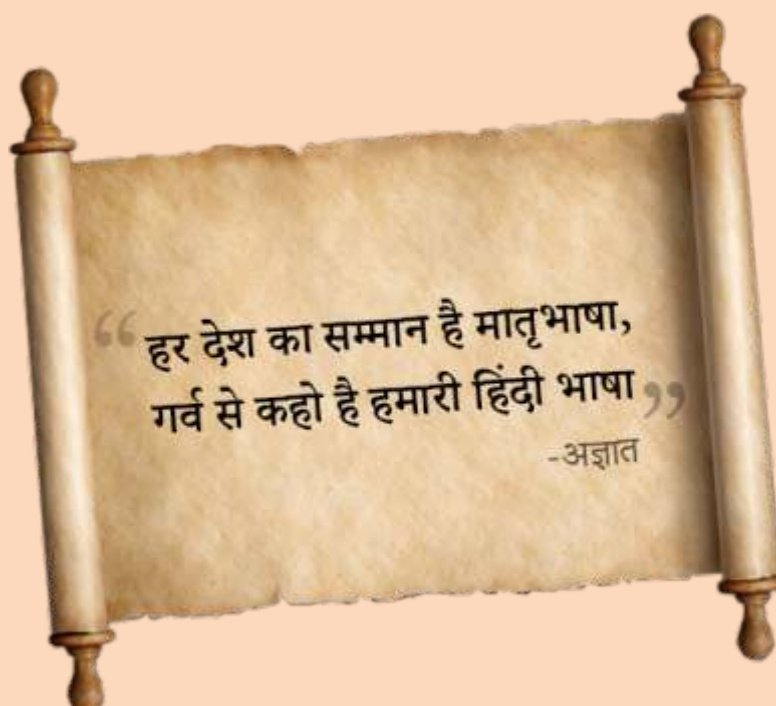 “ हर देश का सम्मान है मातृभाषा,
गर्व से कहो है हमारी हिंदी भाषा ”
-अज्ञात